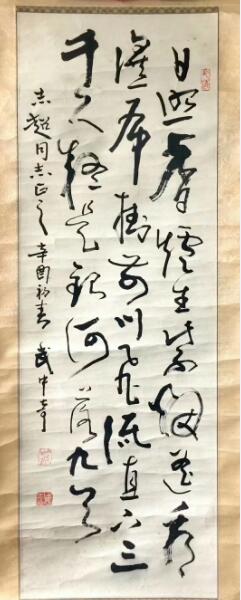 日照香爐生紫烟遥看
瀑布挂前川飛流直下三
千尺疑是銀河落九天
志超同志正之 辛酉初春 武中奇